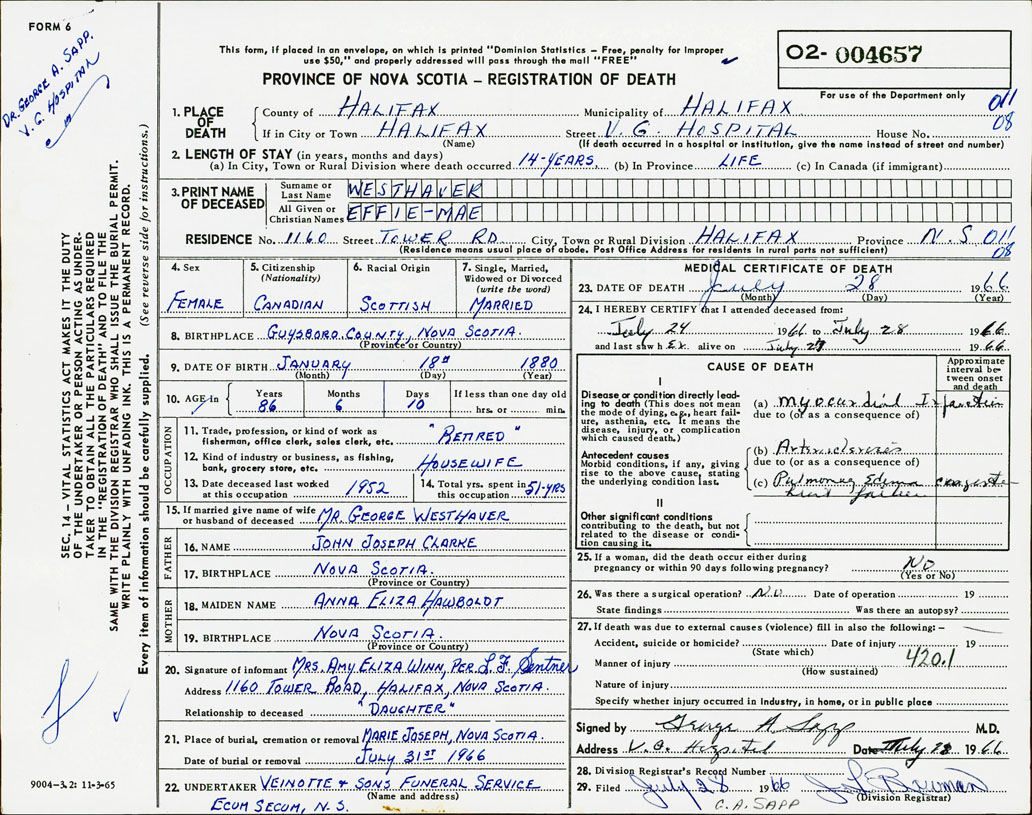 FORM 6
DR. GEORGE A. SAPP.
V. G. HOSPITAL
This form, if placed in an envelope, on which is printed "Dominion Statistics – Free, penalty for improper
use $50," and properly addressed will pass through the mail "FREE"
02- 004657
For use of the Department only
PROVINCE OF NOVA SCOTIA – REGISTRATION OF DEATH
011
08
1. PLACE OF DEATH
County of HALIFAX Municipality of HALIFAX
If in City or Town HALIFAX Street V. G. HOSPITAL House No.
(Name) (If death occurred in a hospital or institution, give the name instead of street and number)
2. LENGTH OF STAY (in years, months and days)
(a) In City, Town or Rural Division where death occurred 14-YEARS. (b) In Province LIFE (c) In Canada (if immigrant)
3. PRINT NAME OF DECEASED
Surname or Last Name WESTHAVER
All Given or Christian Names EFFIE-MAE
RESIDENCE No. 1160 Street TOWER RD. City, Town or Rural Division HALIFAX Province N.S 011
(Residence means usual place of abode. Post Office Address for residents in rural parts not sufficient) 08
4. Sex
FEMALE
5. Citizenship
(Nationality)
CANADIAN
6. Racial Origin
SCOTTISH
7. Single, Married,
Widowed or Divorced
(write the word)
MARRIED
8. BIRTHPLACE GUYSBORO. COUNTY, NOVA SCOTIA.
(Province or Country)
9. DATE OF BIRTH JANUARY 18th 1880
(Month) (Day) (Year)
10. AGE in
Years Months Days If less than one day old
86 6 10 hrs. or min.
OCCUPATION
11. Trade, profession, or kind of work as
fisherman, office clerk, sales clerk, etc. "RETIRED"
12. Kind of industry or business, as fishing,
bank, grocery store, etc. HOUSEWIFE
13. Date deceased last worked
at this occupation 1952
14. Total yrs. spent in
this occupation 51-YRS
15. If married give name of wife
or husband of deceased MR. GEORGE WESTHAVER
FATHER
16. NAME JOHN JOSEPH CLARKE
17. BIRTHPLACE NOVA SCOTIA.
(Province or Country)
MOTHER
18. MAIDEN NAME ANNA ELIZA HAWBOLDT
19. BIRTHPLACE NOVA SCOTIA.
(Province or Country)
20. Signature of informant MRS. AMY ELIZA WINN, PER. L.F. Sentner
Address 1160 TOWER ROAD, HALIFAX, NOVA SCOTIA.
Relationship to deceased "DAUGHTER"
21. Place of burial, cremation or removal MARIE JOSEPH, NOVA SCOTIA.
Date of burial or removal JULY 31ST 1966
22. UNDERTAKER VEINOTTE + SONS FUNERAL SERVICE
(Name and address)
ECUM SECUM, N. S.
MEDICAL CERTIFICATE OF DEATH
23. DATE OF DEATH July 28 1966
(Month) (Day) (Year)
24. I HEREBY CERTIFY that I attended deceased from:
July 24 1966 to July 28 1966
and last saw h er alive on July 27 1966
CAUSE OF DEATH
Approximate
interval be-
tween onset
and death
I
Disease or condition directly lead-
ing to death (This does not mean
the mode of dying, e.g., heart fail-
ure, asthenia, etc. It means the
disease, injury, or complication
which caused death.)
(a) Myocardial Infarction
due to (or as a consequence of)
Antecedent causes
Morbid conditions, if any, giving
rise to the above cause, stating
the underlying condition last.
(b)
due to (or as a consequence of)
(c) Pulmonary Edema congestive
heart failure
II
Other significant conditions
contributing to the death, but not
related to the disease or condi-
tion causing it.
25. If a woman, did the death occur either during
pregnancy or within 90 days following pregnancy? No
(Yes or No)
26. Was there a surgical operation? No Date of operation 19
State findings Was there an autopsy?
27. If death was due to external causes (violence) fill in also the following: –
Accident, suicide or homicide? Date of injury 19
(State which)
Manner of injury 420.1
(How sustained)
Nature of injury
Specify whether injury occurred in industry, in home, or in public place
Signed by George A Sapp M.D.
Address V. G. Hospital Date July 28 1966
28. Division Registrar's Record Number
29. Filed July 28 1966
(Division Registrar)
G. A. SAPP
SEC. 14 – VITAL STATISTICS ACT MAKES IT THE DUTY
OF THE UNDERTAKER OR PERSON ACTING AS UNDER-
TAKER TO OBTAIN ALL THE PARTICULARS REQUIRED
IN THE "REGISTRATION OF DEATH" AND TO FILE THE
SAME WITH THE DIVISION REGISTRAR WHO SHALL ISSUE THE BURIAL PERMIT.
WRITE PLAINLY WITH UNFADING INK. THIS IS A PERMANENT RECORD.
Every item of information should be carefully supplied. (See reverse side for instructions.)
9004-3.2: 11-3-65